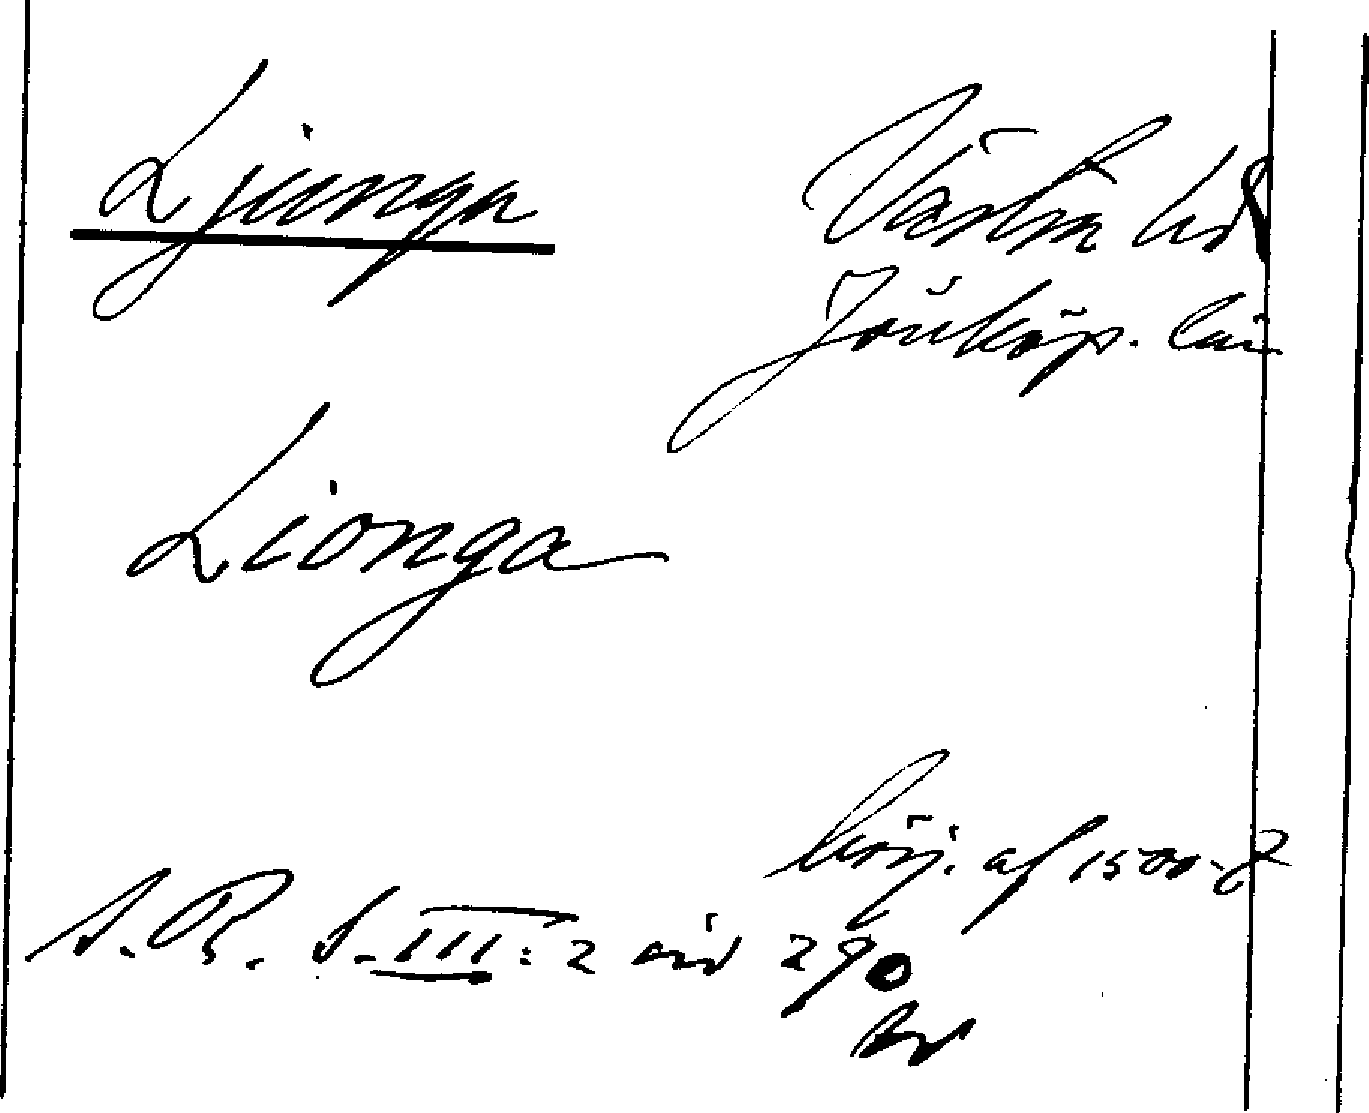 Ljunga
Västra hd
Jönköp. län
Lionga
börj. af 1500-t
S. R. S. III: 2 sid 290